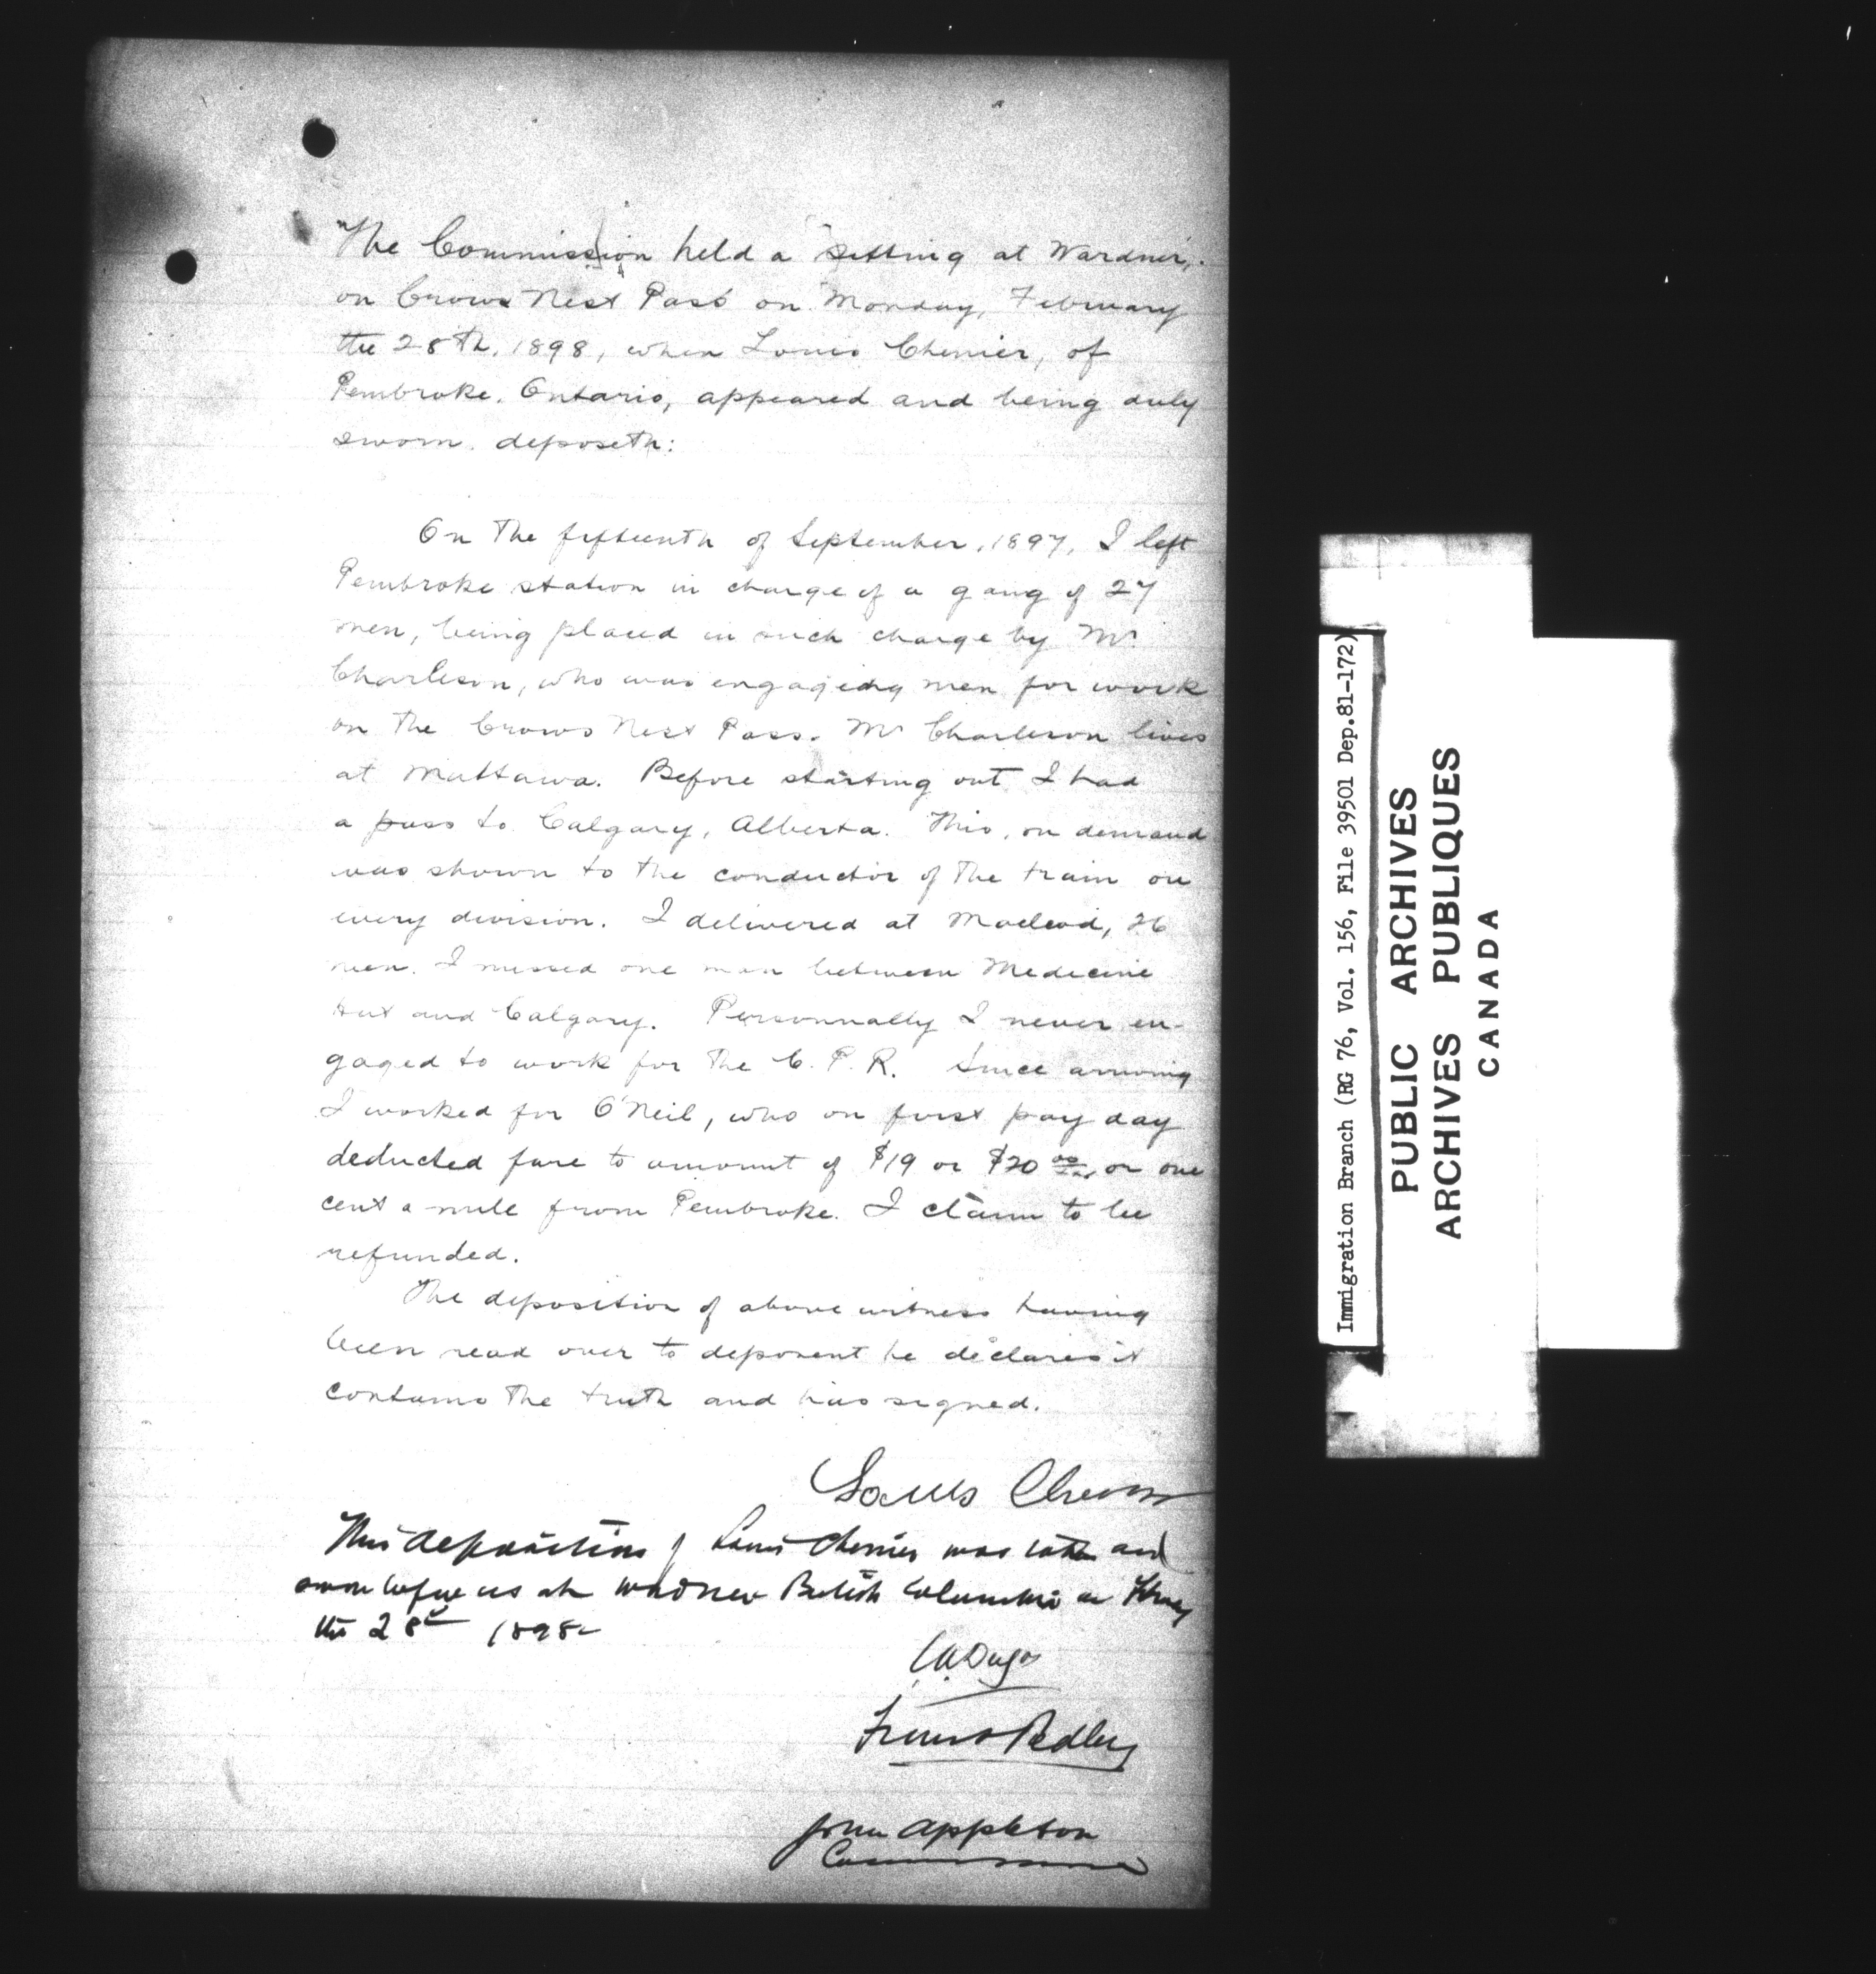 The Commission held a sitting at Wardner,
on Crows Nest Pass on Monday, February
the 28th, 1898, when Louis Chenier, of
Pembroke, Ontario, appeared and being duly
sworn deposeth:
On the fifteenth of September, 1897, I left
Pembroke station in charge of a gang of 27
men, being placed in such charge by Mr
Charleson, who was engageing men for work
on the Crows Nest Pass. Mr Charleson lives
at Mattawa. Before starting out I had
a pass to Calgary, Alberta. This, on demand
was shown to the conductor of the train on
every division. I delivered at Macleod, 26
men. I missed one man between Medecine
Hat and Calgary. Personnally I never en-
gaged to work for the C. P. R. Since arriving
I worked for O'Neil, who on first pay day
deducted fare to amount of $19 or $20 00/00, or one
cent a mile from Pembroke. I claim to be
refunded.
The deposition of above witness having
been read over to deponent he declares it
contains the truth and has signed.
Louis Chenier
This deposition of Louis Chenier was taken and
sworn before us at Wardner British Columbia on
the 28th 1898
C.A. Dugas
Frank Pedley
John Appleton
Commissioners
Immigration Branch (RG 76, Vol. 156, File 39501 Dep.81-172)
PUBLIC ARCHIVES
ARCHIVES PUBLIQUES
CANADA